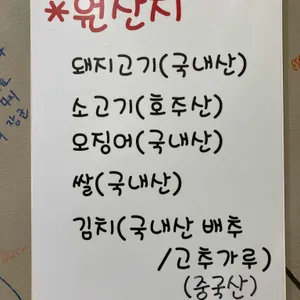 *원산지
돼지고기(국내산)
소고기(호주산)
오징어(국내산)
쌀(국내산)
김치(국내산 배추
/고추가루)
(중국산)